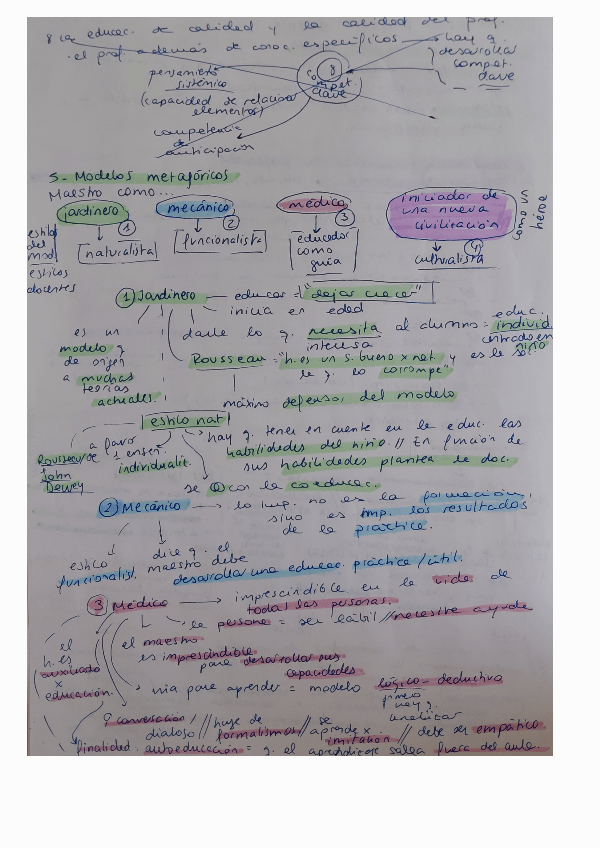 8 la educac. de calidad y la calidad del prof.
el prof. además de conoc. específicos — hay q.
desarrollar
compet.
clave
8
compet.
clave
pensamiento
sistémico
(capacidad de relacionar
elementos)
competencia
de
anticipación
5- Modelos metafóricos
Maestro como...
jardinero
mecánico
médico
iniciador de
una nueva
civilización
como un
héroe
1
2
3
4
estilos
del
mod.
estilos
docentes
naturalista
funcionalista
educador
como
guía
culturalista
1) Jardinero — educar = "dejar crecer"
inicia en edad
es un
modelo q
da origen
a muchas
teorías
actuales.
darle lo q. necesita al alumno =
interesa
educ.
individ.
centrada en
niño
Rousseau = "h. es un s. bueno x nat. y es la soc.
la q. lo corrompe"
máximo defensor del modelo
estilo nat
Rousseau
John
Dewey
a favor
de 1 enseñ.
individualiz.
hay q. tener en cuenta en la educ. las
habilidades del niño. // En función de
sus habilidades plantea la doc.
se con la coeducac.
2) Mecánico → lo imp. no es la formación,
sino es imp. los resultados
de la práctica.
estilo
funcionalist.
dice q. el
maestro debe
desarrollar una educac. práctica / útil.
3) Médico → imprescindible en la vida de
todas las personas.
la persona = ser débil // necesita ayuda
el
h. es
auxiliado
x
educación.
el maestro
es imprescindible
para desarrollar sus
capacidades
vía para aprender = modelo lógico-deductivo
hay q.
analizar
conversación /
dialogo // huye de
formalismos // se
aprende x
imitación // debe ser empático
finalidad: autoeducación = q. el aprendizaje salga fuera del aula.